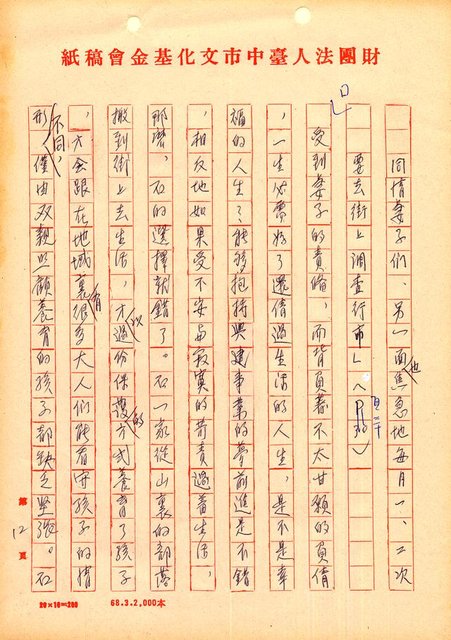 財團法人臺中市文化基金會稿紙
同情妻子們，另一面也焦急地每月一、二次
要去街上調查行市」（
受到妻子的責備，而背負着不太甘願的負債
，一生浪費於了還債過生活的人生，是不是幸
福的人生？能够抱持興建事業的夢前進是不錯
，相反地如果受不安與寂寞的苛責過着生活，
那麼，石的選擇就錯了。石一家從山裏的部落
搬到街上去生活，才以過份保護的方式養育了孩子
，大會跟在地城裏有很多大人們能看守孩子的情
形不同，僅由双親照顧養育的孩子都缺乏堅強。石
第12頁
20×10=200
68.3.2,000本